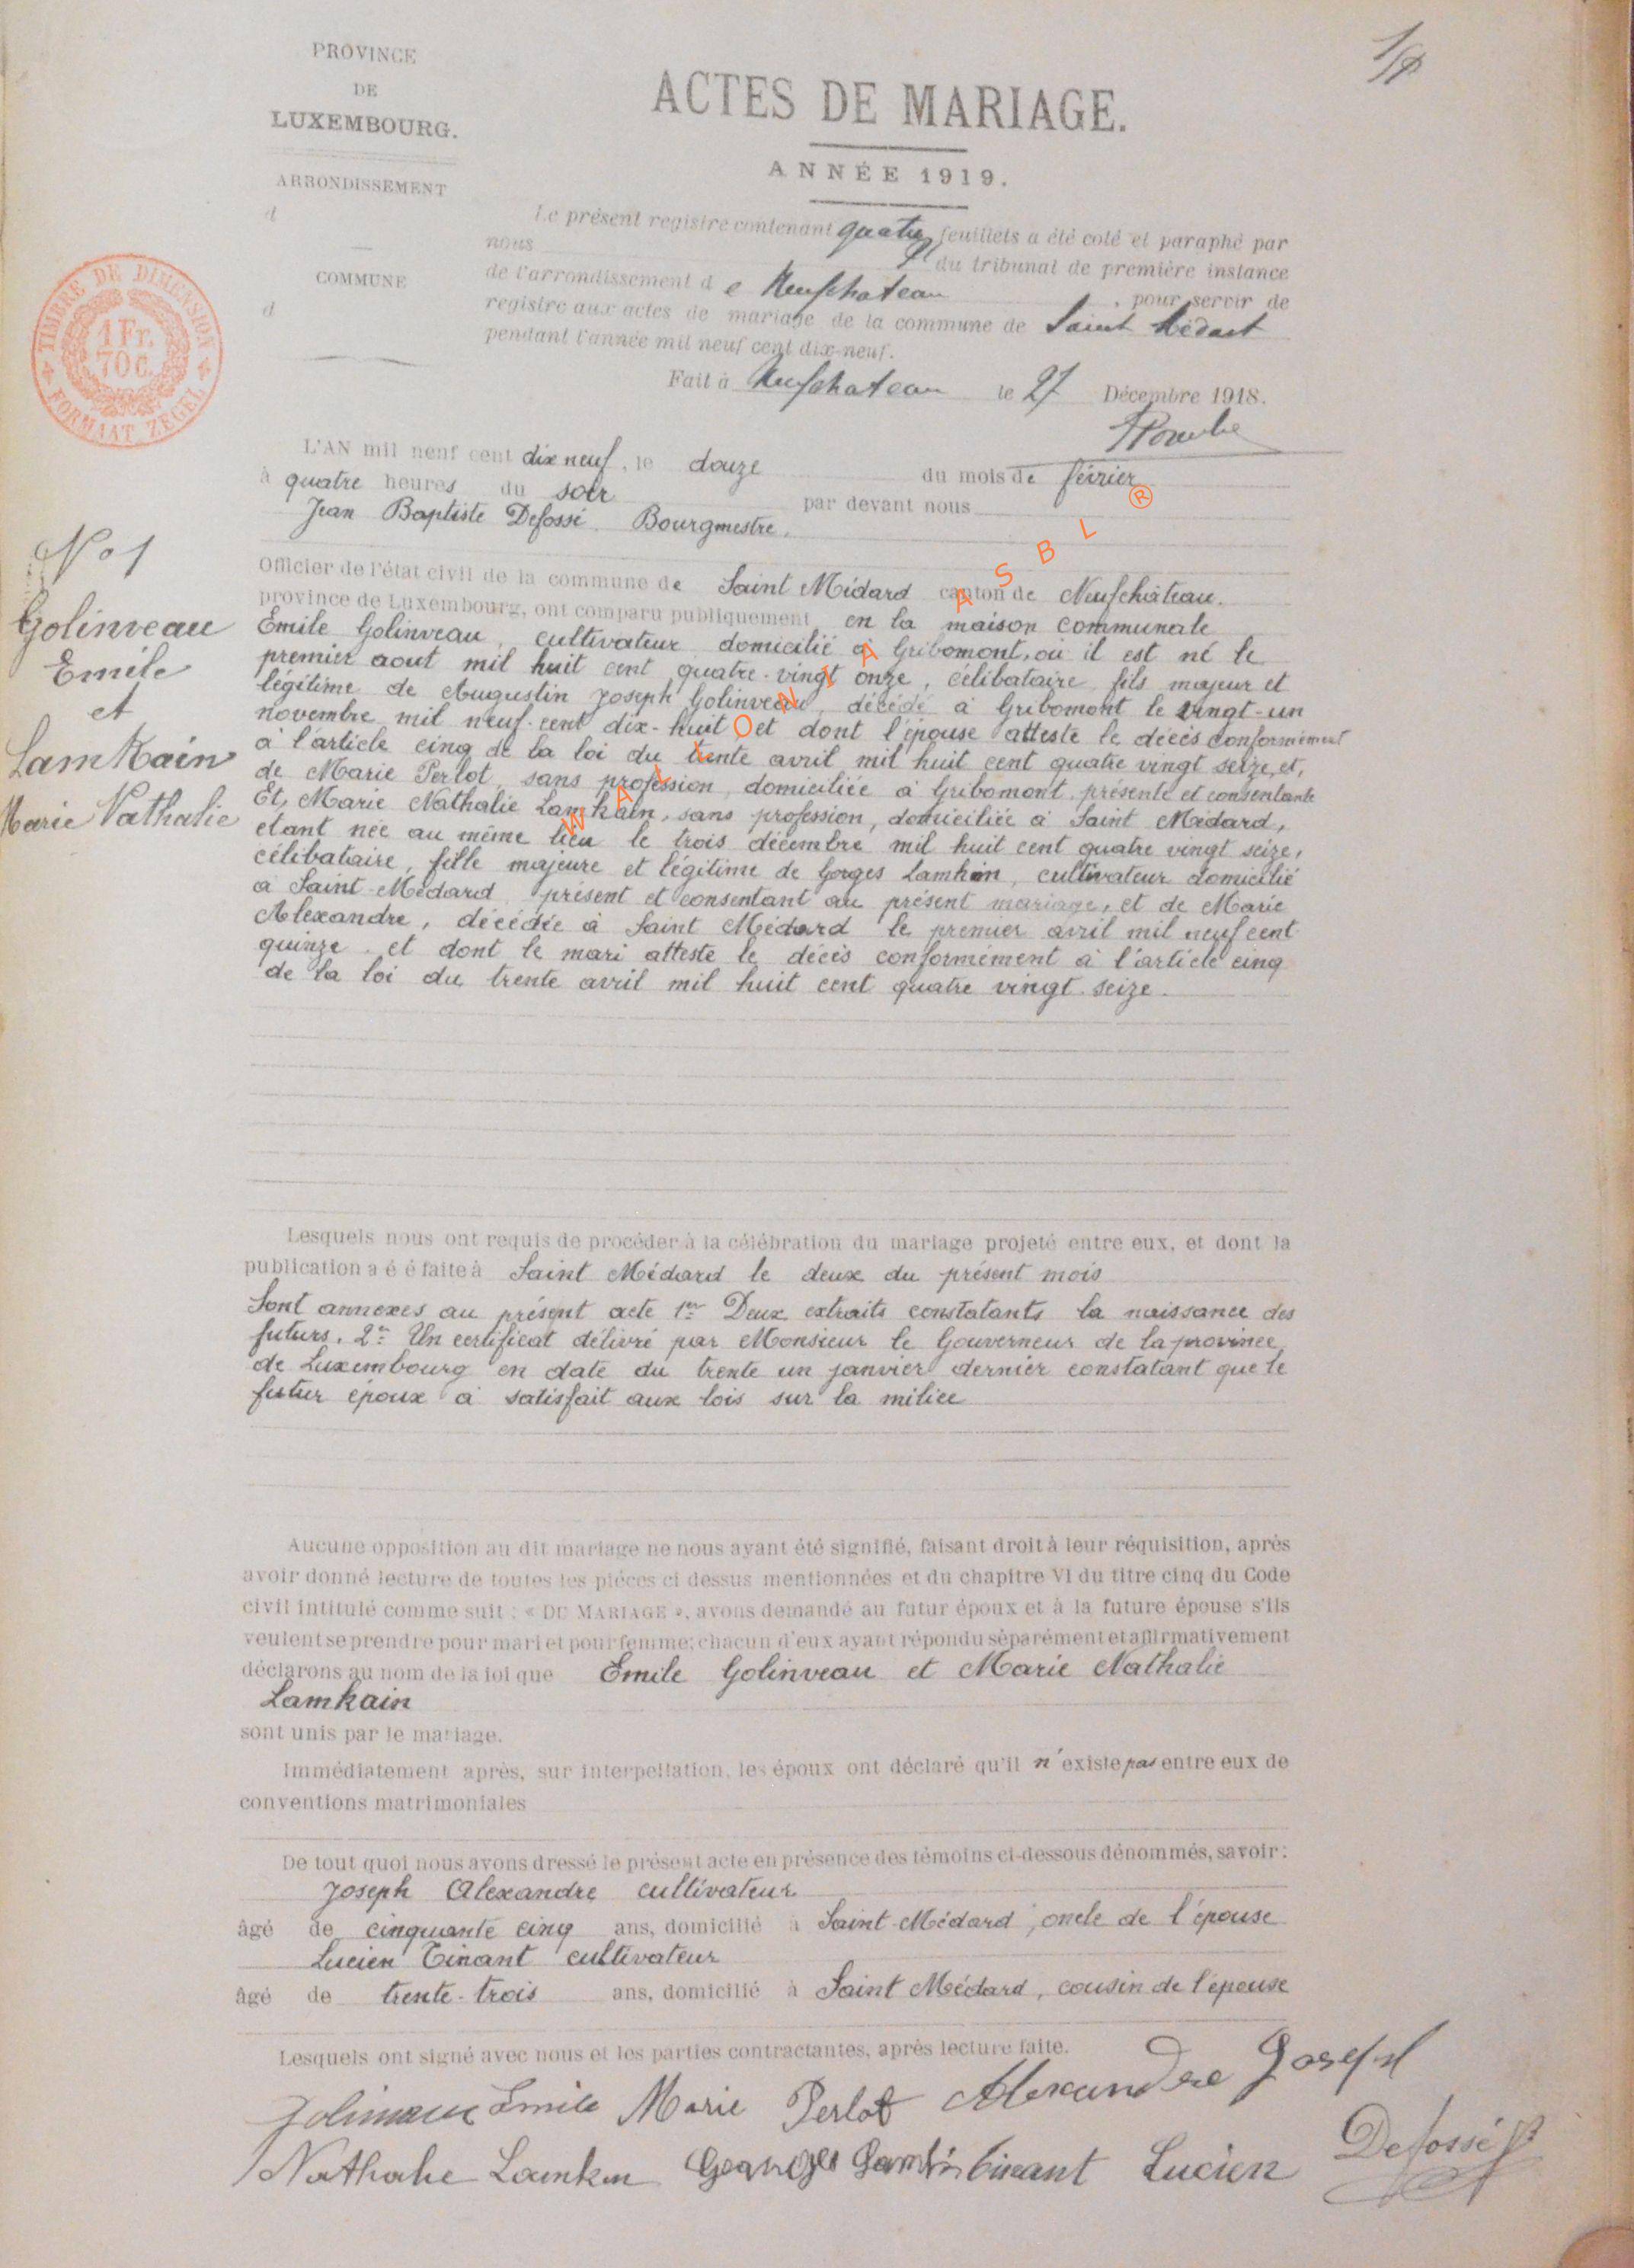 PROVINCE
DE
LUXEMBOURG.
ARRONDISSEMENT
d
COMMUNE
d
TIMBRE DE DIMENSION
1 Fr.
70 C.
FORMAAT ZEGEL
ACTES DE MARIAGE.
ANNÉE 1919.
Le présent registre contenant quatre feuillets a été coté et paraphé par
nous du tribunal de première instance
de l'arrondissement d e Neufchateau , pour servir de
registre aux actes de mariage de la commune de Saint Médart
pendant l'année mil neuf cent dix-neuf.
Fait à Neufchateau le 27 Décembre 1918.
L'AN mil neuf cent dix neuf, le douze du mois de février
à quatre heures du soir par devant nous
Jean Baptiste Defossé Bourgmestre.
No 1
Golinveau
Emile
et
Lamkain
Marie Nathalie
Officier de l'état civil de la commune de Saint Médard canton de Neufchâteau.
province de Luxembourg, ont comparu publiquement en la maison communale
Emile Golinveau, cultivateur domicilié à Gribomont, où il est né le
premier aout mil huit cent quatre-vingt onze, célibataire, fils majeur et
légitime de Augustin Joseph Golinveau, décédé à Gribomont le vingt-un
novembre mil neuf-cent dix-huit et dont l'épouse atteste le décès conformément
à l'article cinq de la loi du trente avril mil huit cent quatre vingt seize, et,
de Marie Perlot, sans profession, domiciliée à Gribomont, présente et consentante
Et, Marie Nathalie Lamkain, sans profession, domiciliée à Saint Médard,
etant née au même lieu le trois décembre mil huit cent quatre vingt seize,
célibataire, fille majeure et légitime de Gorges Lamkin, cultivateur domicilié
à Saint-Médard présent et consentant au présent mariage, et de Marie
Alexandre, décédée à Saint Médard le premier avril mil neuf cent
quinze et dont le mari atteste le décès conformément à l'article cinq
de la loi du trente avril mil huit cent quatre vingt seize.
WALLONIA ASBL ®
Lesquels nous ont requis de procéder à la célébration du mariage projeté entre eux, et dont la
publication a é é faite à Saint Médard le deux du présent mois
Sont annexes au présent acte 1er Deux extraits constatants la naissance des
futurs. 2e Un certificat délivré par Monsieur le Gouverneur de la province
de Luxembourg en date du trente un janvier dernier constatant que le
futur époux a satisfait aux lois sur la milice
Aucune opposition au dit mariage ne nous ayant été signifié, faisant droit à leur réquisition, après
avoir donné lecture de toutes les pièces ci dessus mentionnées et du chapitre VI du titre cinq du Code
civil intitulé comme suit : « DU MARIAGE », avons demandé au futur époux et à la future épouse s'ils
veulent se prendre pour mari et pour femme; chacun d'eux ayant répondu séparément et affirmativement
déclarons au nom de la loi que Emile Golinveau et Marie Nathalie
Lamkain
sont unis par le mariage.
Immédiatement après, sur interpellation, les époux ont déclaré qu'il n'existe pas entre eux de
conventions matrimoniales
De tout quoi nous avons dressé le présent acte en présence des témoins ci-dessous dénommés, savoir:
Joseph Alexandre cultivateur
âgé de cinquante cinq ans, domicilié à Saint-Médard, oncle de l'épouse
Lucien Tinant cultivateur
âgé de trente-trois ans, domicilié à Saint Médard, cousin de l'épouse
Lesquels ont signé avec nous et les parties contractantes, après lecture faite.
Golinveau Emile Marie Perlot Alexandre Joseph
Nathalie Lamkin Georges Lamkin Tinant Lucien Defossé JB